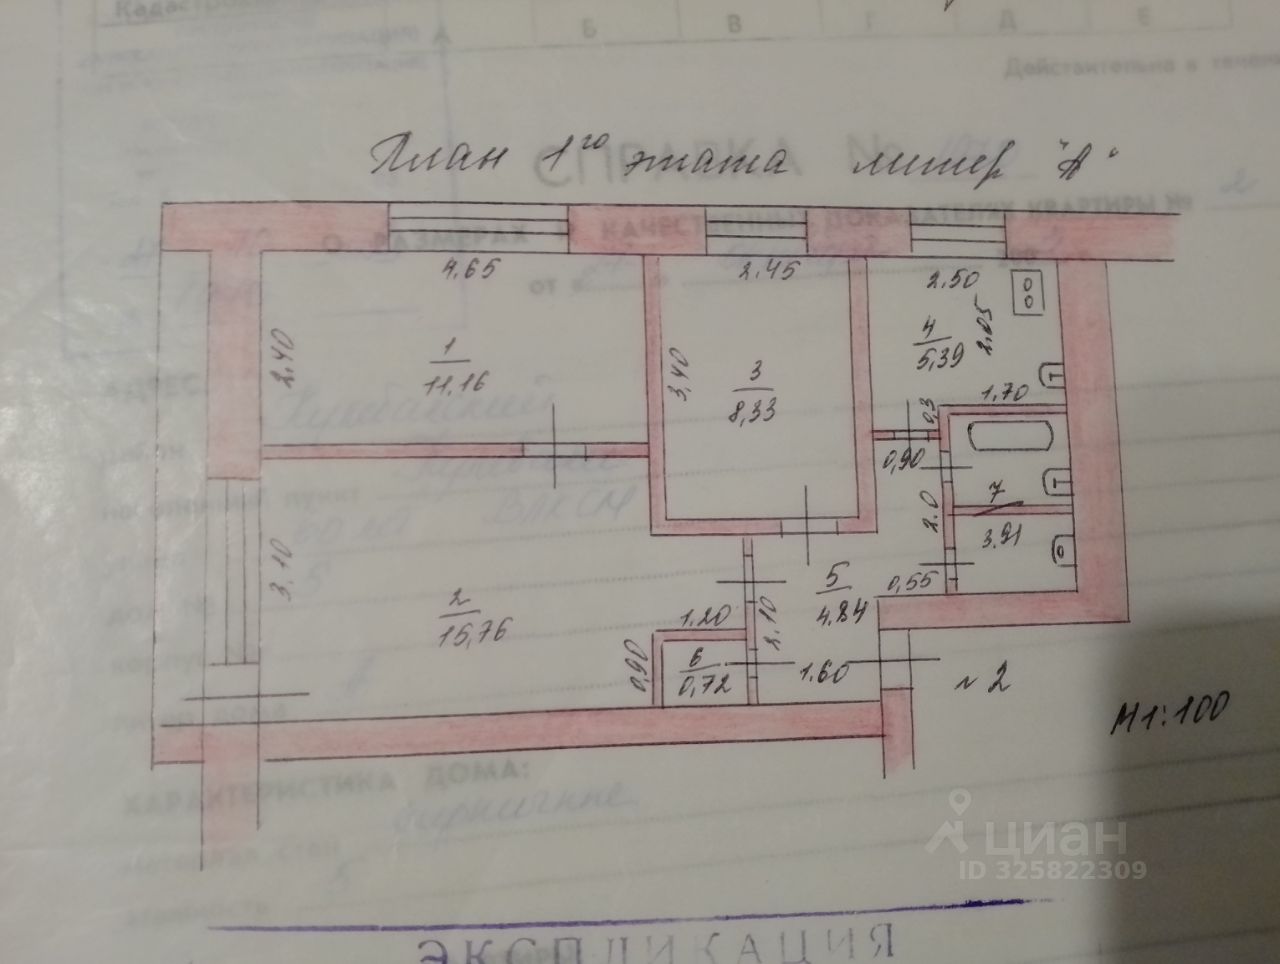 Кадастр
А Б В Г Д Е
Действительна в течен
План 1го этажа литер "А"
СПРАВКА №
О РАЗМЕРАХ И КАЧЕСТВЕННЫХ ПОКАЗАТЕЛЯХ КВАРТИРЫ № 2
от «
4.65
2.45
2.50
2.40
1
11.16
3,40
3
8,33
4
5,39
2.05
1.70
0,3
0,90
АДРЕС
2.0
7
3.91
населенный пункт
60 лет ВЛКСМ
3.10
2
15,76
5
4.84
0,55
1.20
2.10
0,90
6
0,72
1.60
2
М1:100
ХАРАКТЕРИСТИКА ДОМА:
кирпичные
5
этажность
циан
ID 325822309
ЭКСПЛИКАЦИЯ